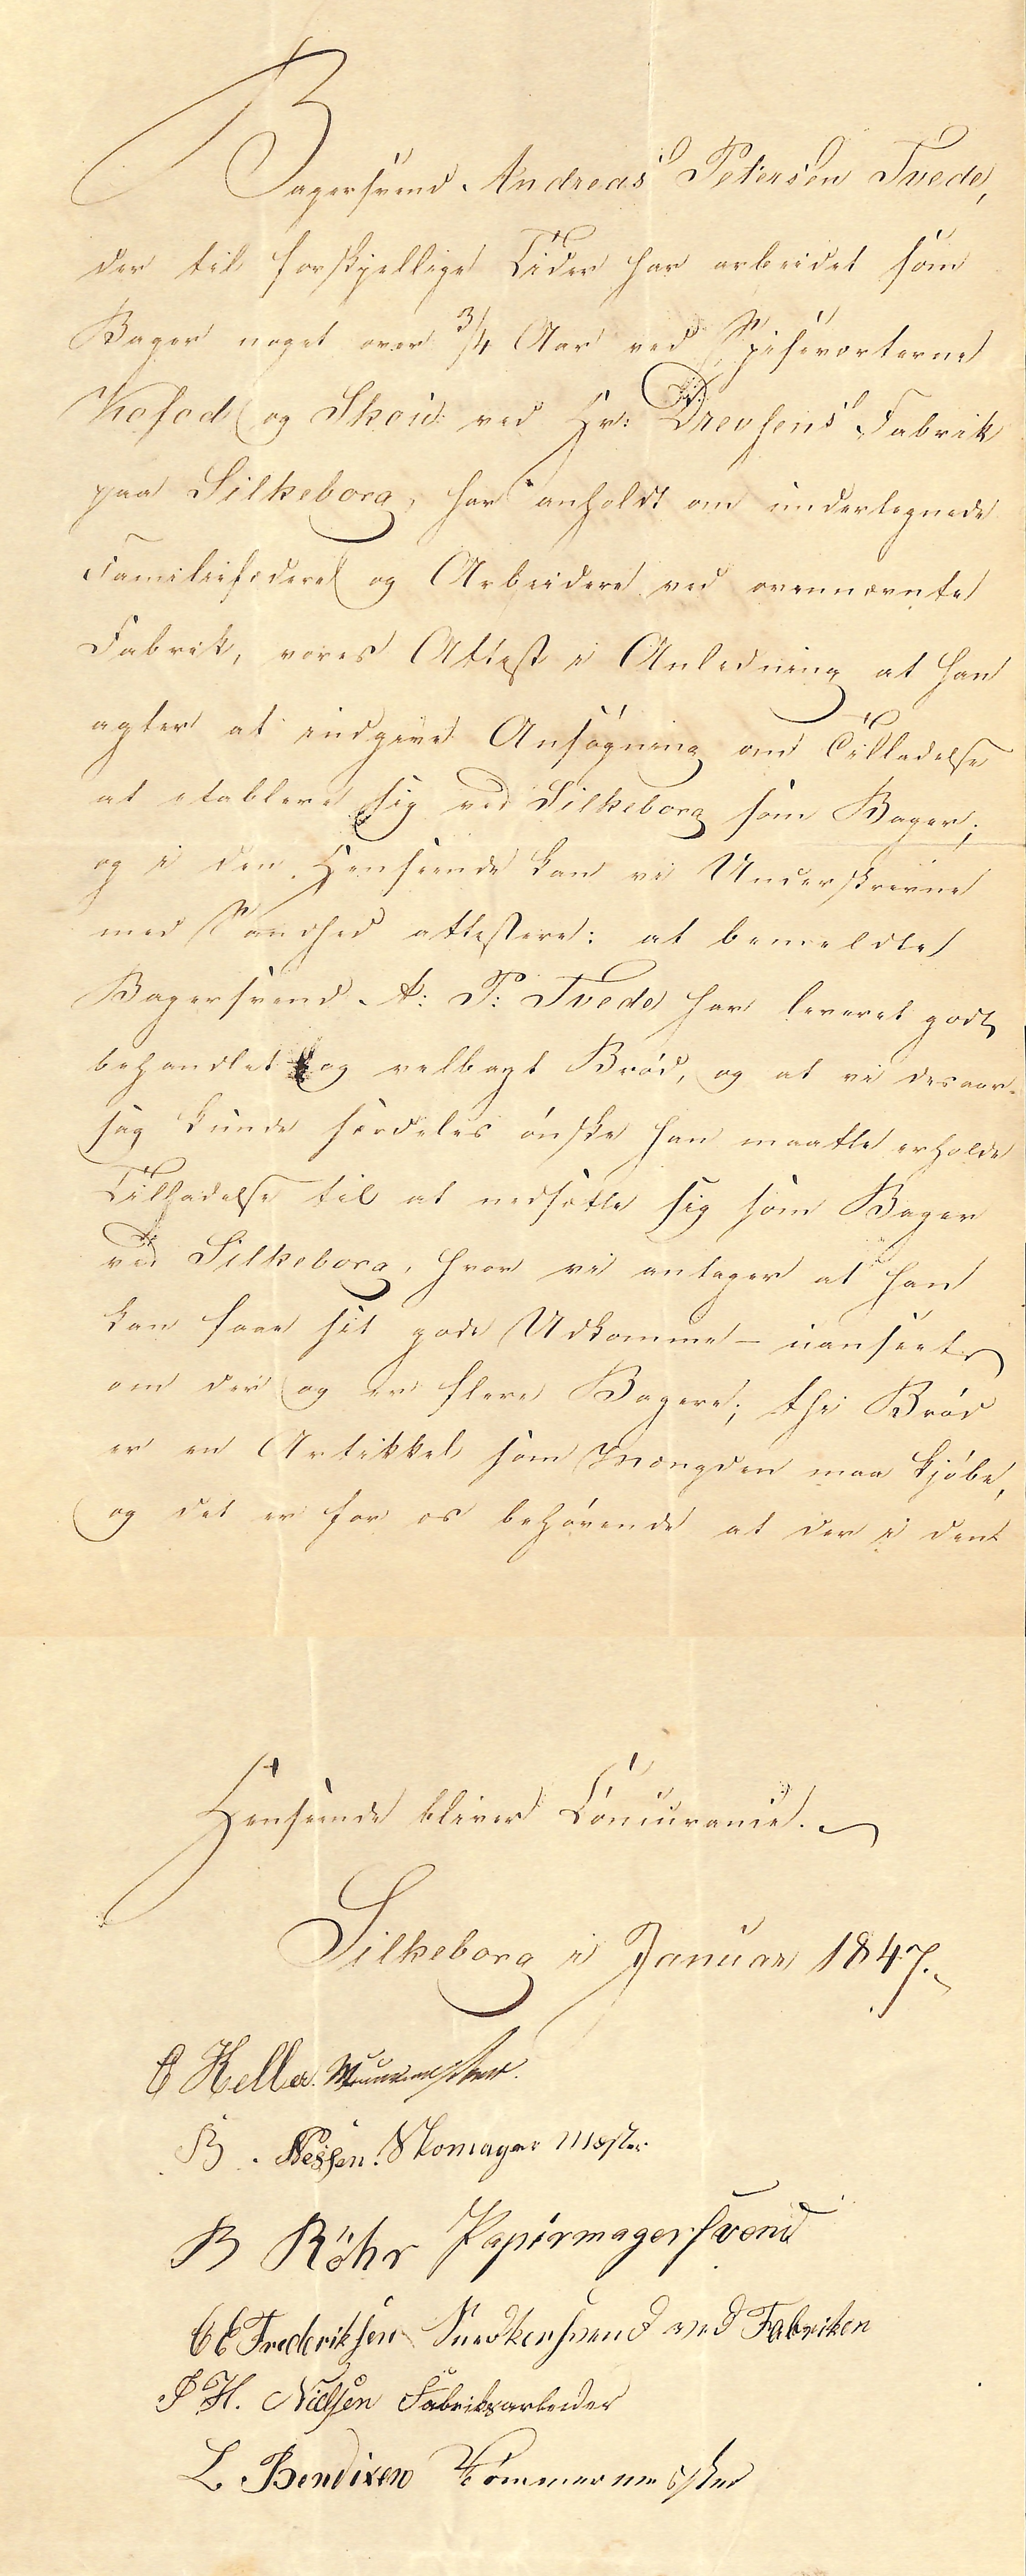 Bagersvend Andreas Petersen Tvede,
der til forskjellige Tider har arbeidet som
Bager noget over 3/4 Aar ved Spiseværterne
Kofod og Skou ved Hr: Drevsens Fabrik
paa Silkeborg, har anholdt om undertegnede
Familiefædere og Arbeidere ved ovennævnte
Fabrik, vores Attest i Anledning at han
agter at indgive Ansøgning om Tilladelse
at etablere sig ved Silkeborg som Bager;
og i den Henseende kan vi Underskrevne
med Sandhed attestere: at bemeldte
Bagersvend A: P: Tvede har leveret godt
behandlet og velbagt Brød, og at vi desaar-
sag kunde særdeles ønske han maatte erholde
Tilladelse til at nedsætte sig som Bager
ved Silkeborg, hvor vi antager at han
kan faae sit gode Udkomme – uanseet
om der og er flere Bagere; thi Brød
er en Artikkel som Mængden maa kjøbe,
og det er for os behøvende at der i den
Henseende bliver Concurance.
Silkeborg i Januar 1847.
C Keller. Muurmester.
B. Nessen. Skomager Mester
B Röhr Papirmagersvend
C C Frederiksen Snedkersvend ved Fabriken
P H. Nielsen Fabriksarbeider
L. Bendixen Tömmermester